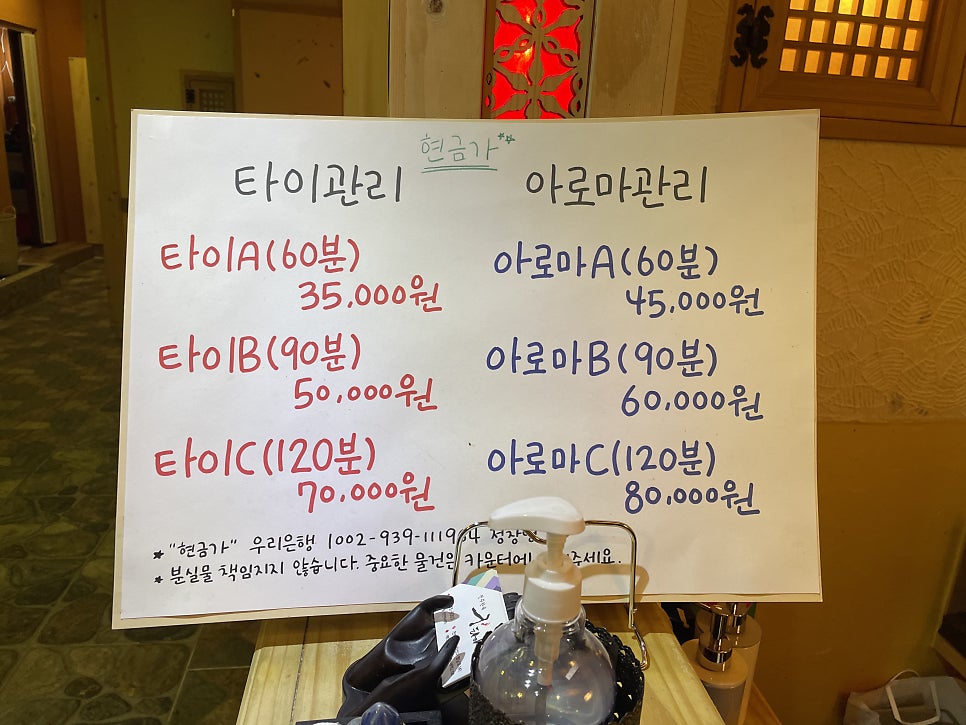 현금가**
타이관리
타이A(60분)
35,000원
타이B(90분)
50,000원
타이C(120분)
70,000원
아로마관리
아로마A(60분)
45,000원
아로마B(90분)
60,000원
아로마C(120분)
80,000원
* "현금가" 우리은행 1002-939-111964 정장
* 분실물 책임지지 않습니다. 중요한 물건은 카운터에 주세요.